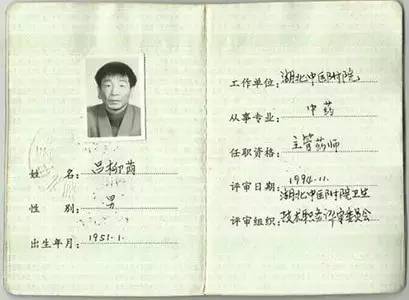 姓 名：吕柳荫
性 别：男
出生年月：1951.1.
工作单位：湖北中医附院
从事专业：中药
任职资格：主管药师
评审日期：1994.11.
湖北中医附院卫生
评审组织：技术职务评审委员会